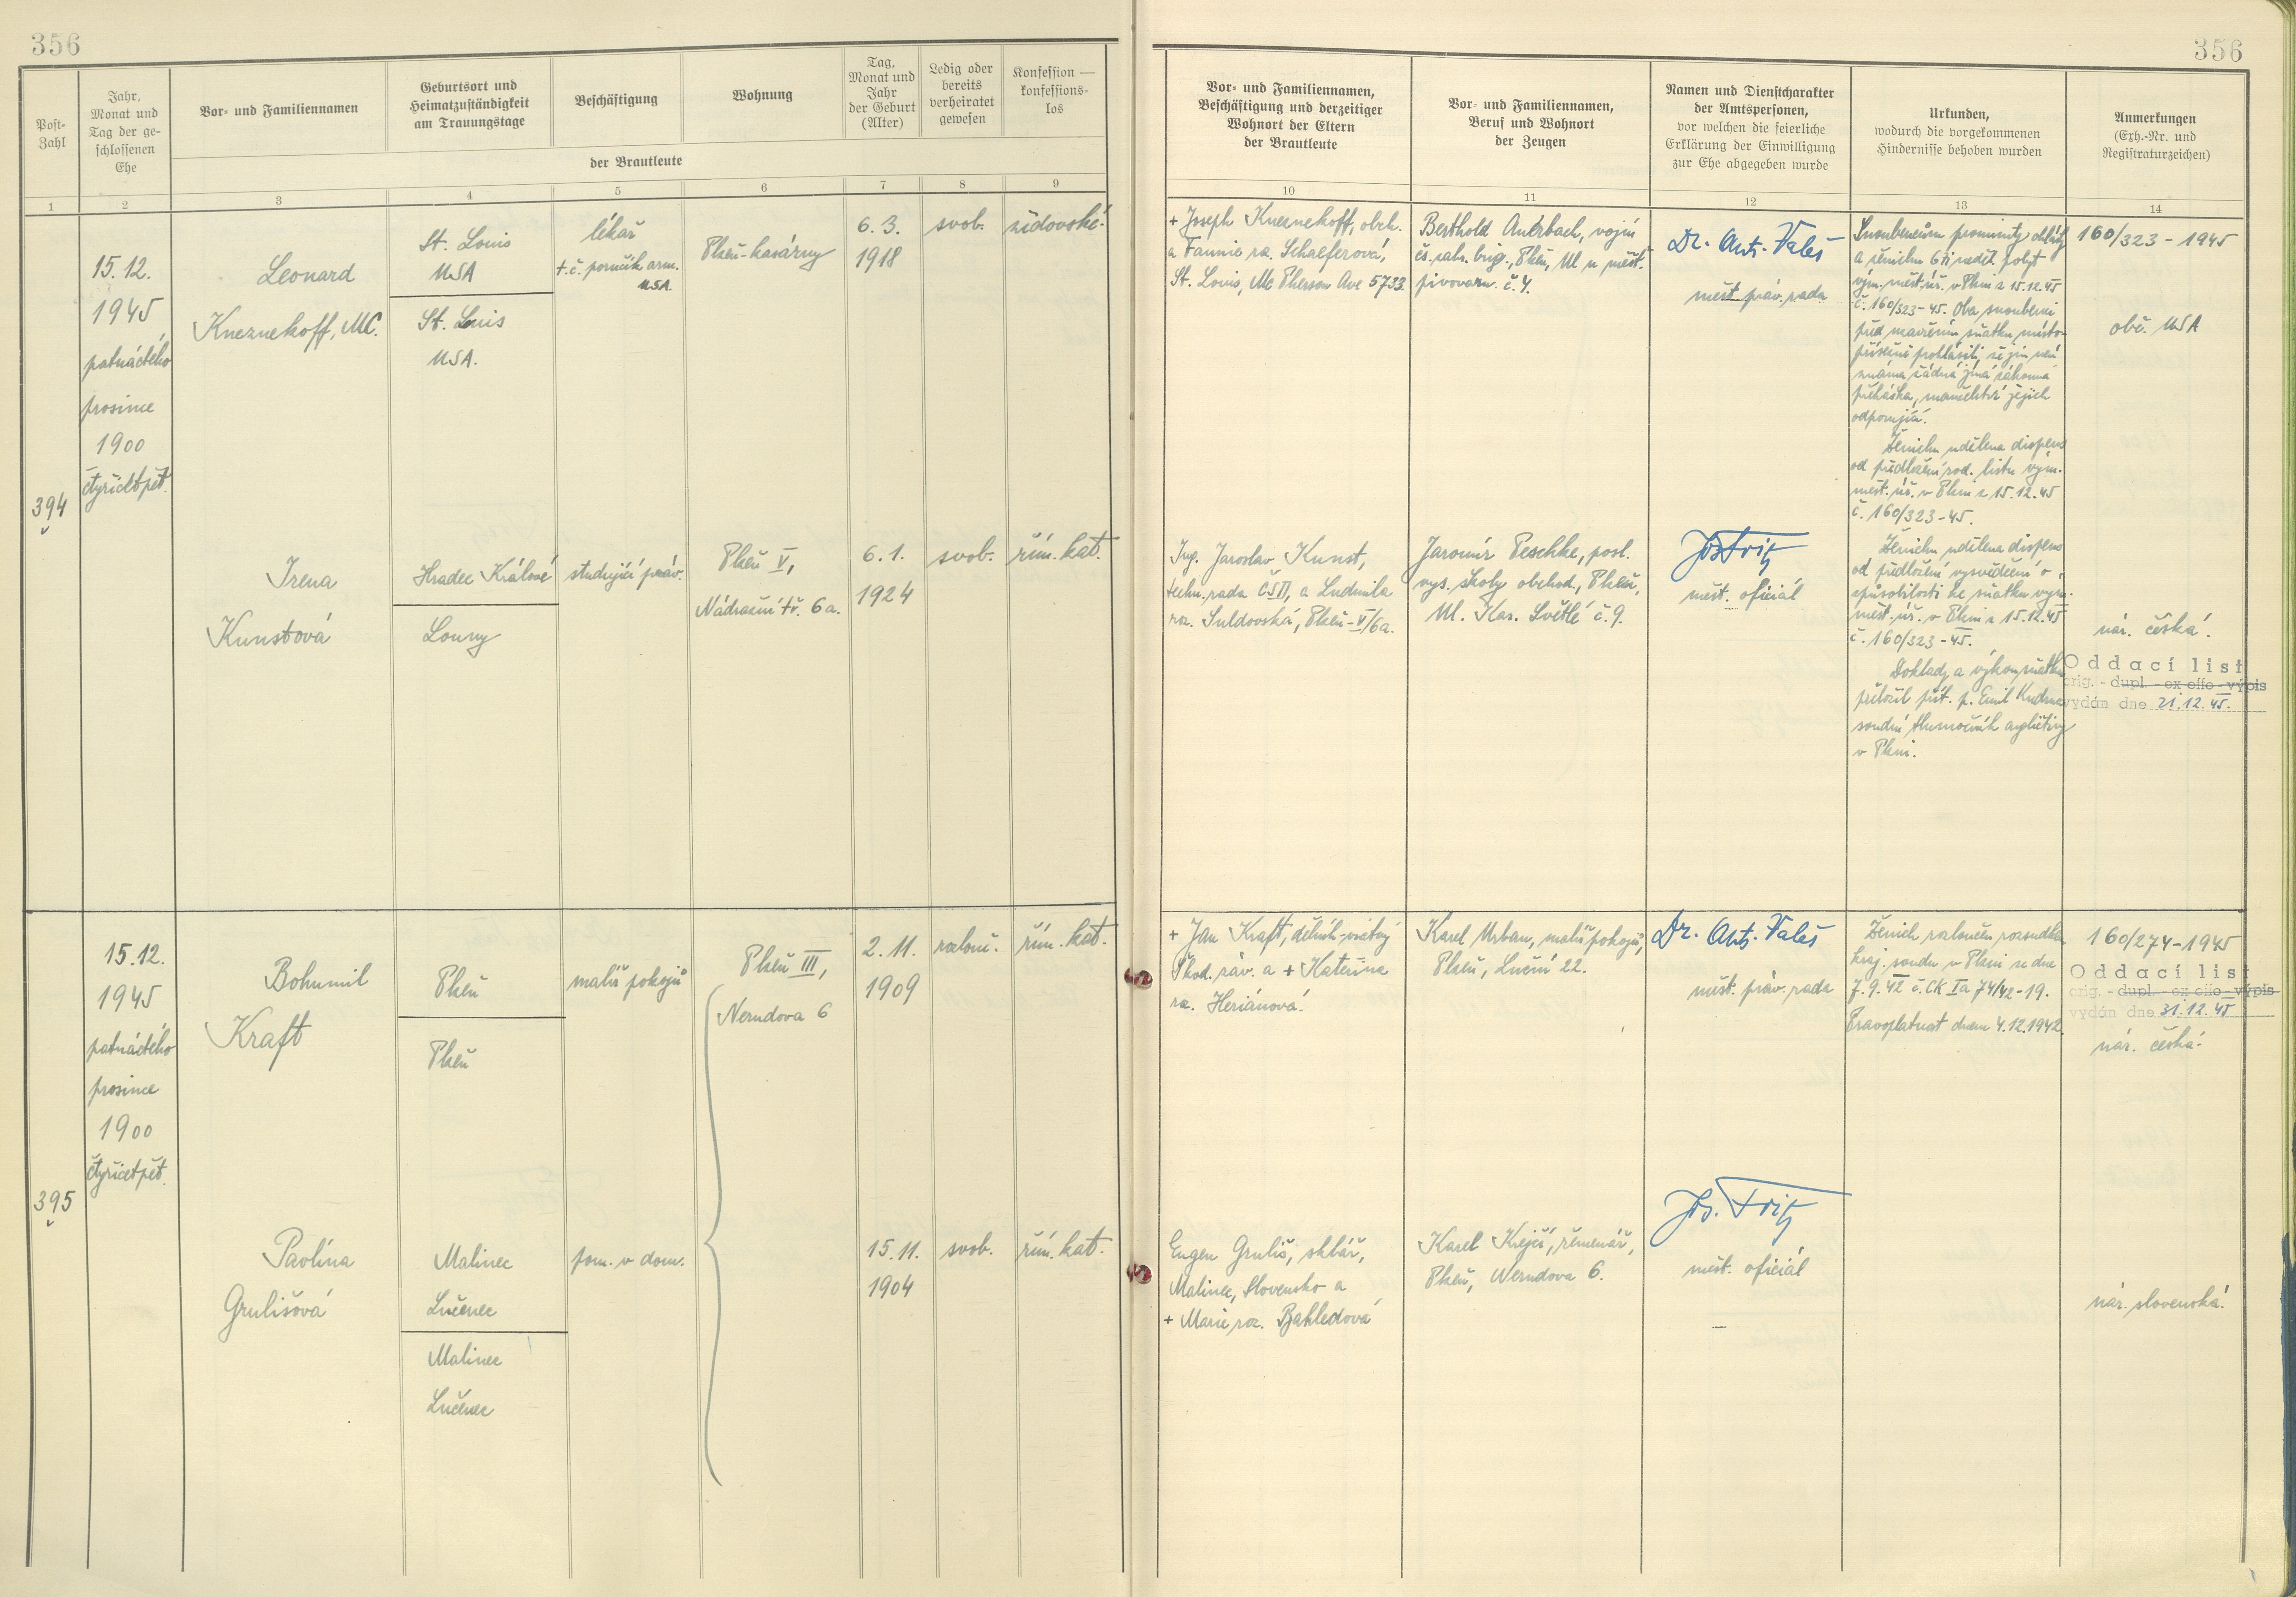 356
356
Post-
Zahl
Jahr,
Monat und
Tag der ge-
schlossenen
Ehe
Vor- und Familiennamen
Geburtsort und
Heimatzuständigkeit
am Trauungstage
Beschäftigung
Wohnung
Tag,
Monat und
Jahr
der Geburt
(Alter)
Ledig oder
bereits
verheiratet
gewesen
Konfession —
konfessions-
los
der Brautleute
Vor- und Familiennamen,
Beschäftigung und derzeitiger
Wohnort der Eltern
der Brautleute
Vor- und Familiennamen,
Beruf und Wohnort
der Zeugen
Namen und Dienstcharakter
der Amtspersonen,
vor welchen die feierliche
Erklärung der Einwilligung
zur Ehe abgegeben wurde
Urkunden,
wodurch die vorgekommenen
Hindernisse behoben wurden
Anmerkungen
(Exh.-Nr. und
Registraturzeichen)
1
2
3
4
5
6
7
8
9
10
11
12
13
14
394
15.12.
1945
patnáctého
prosince
1900
čtyřicetpět.
Leonard
Kneznekoff, MC.
St. Louis
USA
St. Louis
USA.
lékař
t.č. poručík arm.
USA.
Plzeň-kasárny
6. 3.
1918
svob.
židovské.
+ Joseph Kneznekoff, obch.
a Fannie rz. Schaeferová,
St. Louis, Mc Pherson Ave 5733.
Berthold Auerbach, vojín
čs. zahr. brig., Plzeň, Ul. u měšť.
pivovaru č. 4.
Dr. Ant. Valeš
měst. práv. rada
Snoubencům prominuty ohlášky
a ženichu 6ti
výn. měst. úř. v Plzni z 15.12.45
č. 160/323-45. Oba snoubenci
před uzavřením sňatku místo-
přísežně prohlásili, že jim není
známa žádná jiná zákonná
překážka, manželství jejich
odporující.
Ženichu udělena dispens
od předložení rod. listu výn.
měst. úř. v Plzni z 15.12.45
č. 160/323-45.
Ženichu udělena dispens
od předložení vysvědčení o
způsobilosti ke sňatku výn.
měst. úř. v Plzni z 15.12.45
č. 160/323-45.
Doklady a výkon sňatku
přeložil přít. p. Emil Kudrna
soudní tlumočník angličtiny
v Plzni.
160/323-1945
obč. USA
Irena
Kunstová
Hradec Králové
Louny
studující práv.
Plzeň V,
Nádražní tř. 6a.
6. 1.
1924
svob.
řím. kat.
Ing. Jaroslav Kunst,
techn. rada ČSD, a Ludmila
rz. Suldovská, Plzeň-V/6a.
Jaromír Peschke, posl.
vys. školy obchod., Plzeň,
Ul. Kar. Světlé č. 9.
Jos Fritz
měst. oficiál
nár. česká.
Oddací list
orig. - dupl - ex offo - výpis
vydán dne 21.12.45.
395
15.12.
1945
patnáctého
prosince
1900
čtyřicetpět.
Bohumil
Kraft
Plzeň
Plzeň
malíř pokojů
Plzeň III,
Nerudova 6
2. 11.
1909
rozlouč.
řím. kat.
+ Jan Kraft, dělník
Škod. záv. a + Kateřina
rz. Heriánová.
Karel Urban, malíř pokojů,
Plzeň, Luční 22.
Dr. Ant. Valeš
měst. práv. rada
Ženich rozloučen rozsudkem
kraj. soudu v Plzni ze dne
7. 9. 42 č. CK Ia 74/42-19.
Pravoplatnost dnem 4.12.1942.
160/274-1945
Oddací list
orig. - dupl - ex offo - výpis
vydán dne 31.12.45
nár. česká.
Pavlína
Grulišová
Malinec
Lučenec
Malinec
Lučenec
pom. v dom.
15. 11.
1904
svob.
řím. kat.
Eugen Gruliš, sklář,
Malinec, Slovensko a
+ Marie roz. Bahledová
Karel Krejčí, řemenář,
Plzeň, Nerudova 6.
Jos. Fritz
měst. oficiál
nár. slovenská.